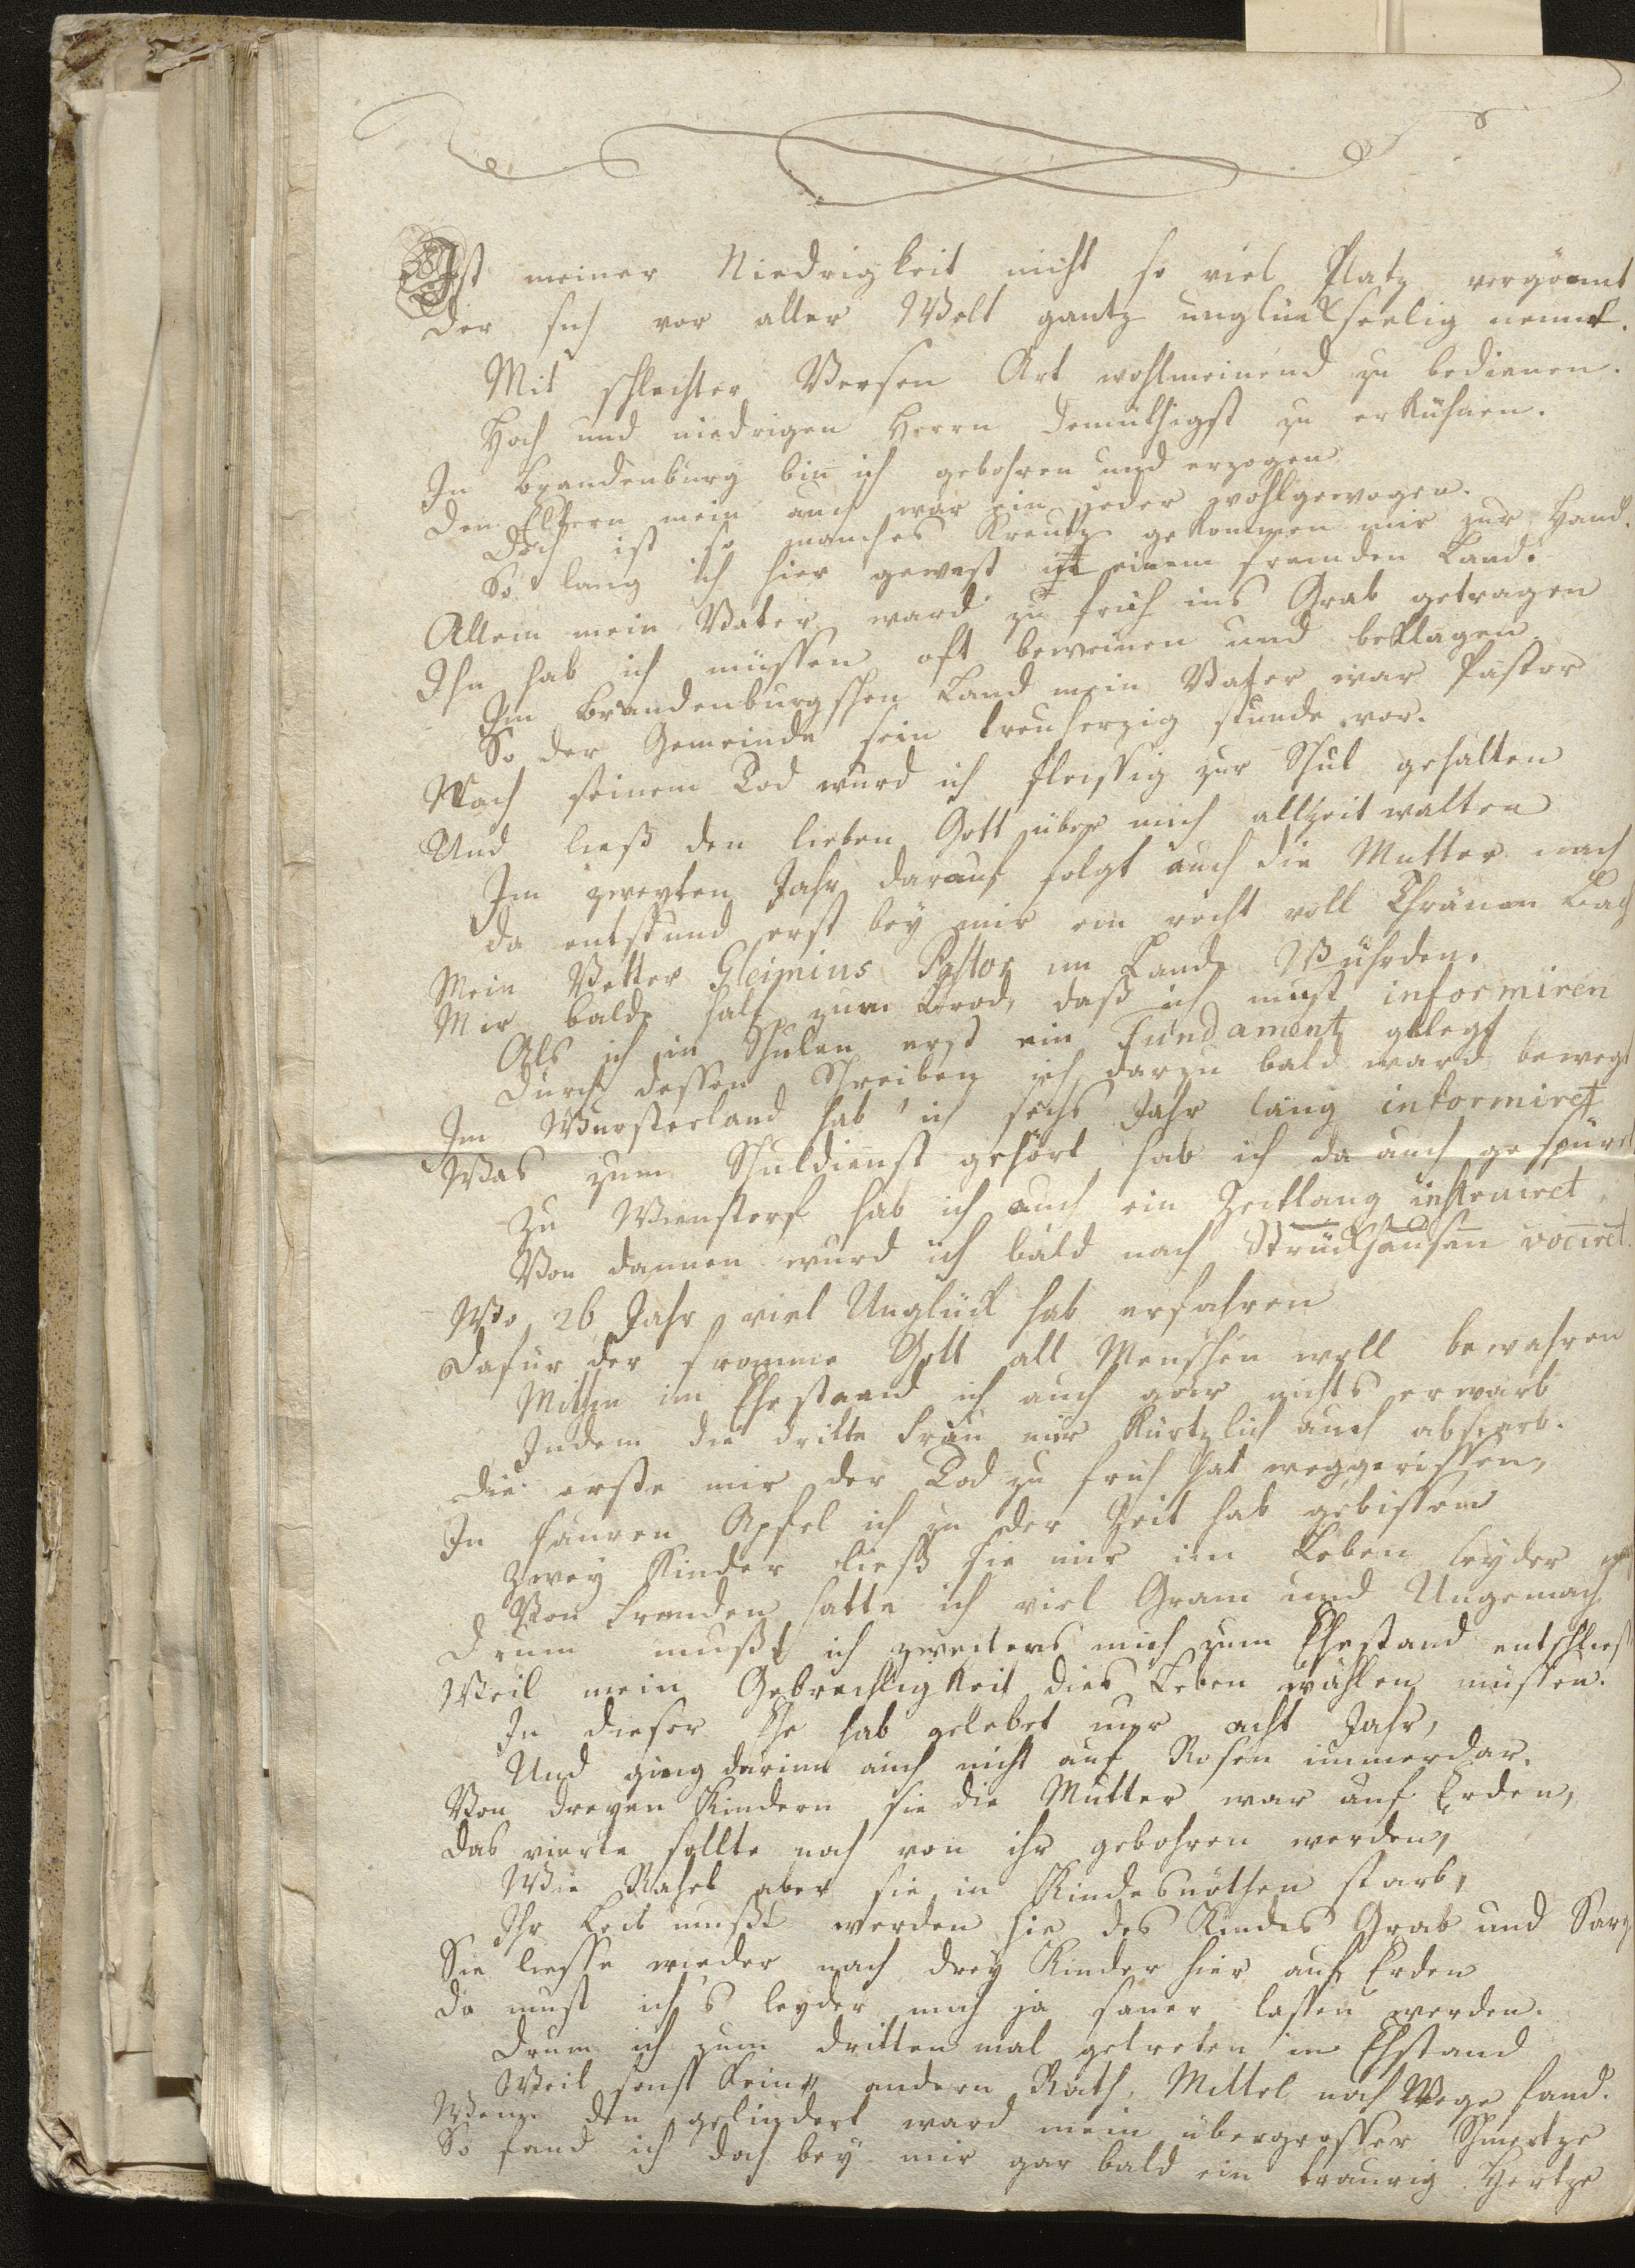 Ist meiner Niedrigkeit nicht so viel Platz vergönnt
Der sich vor aller Welt gantz unglückseelig nennt.
Mit schlechter Versen Art wohlmeinend zu bedienen.
Hoch und niedrigen Herrn demüthigst zu erkühnen.
In Brandenburg bin ich gebohren und erzogen
Den Eltern mein auch war ein jeder wohlgewogen.
Doch ist so manches Kreutz gekommen mir zur Hand.
So lang ich hier gewest in einem fremden Land.
Allein mein Vater ward zu früh ins Grab getragen
Ihn hab ich müssen oft beweinen und beklagen
Im Brandenburgschen Land mein Vater war Pastor
So der Gemeinde sein treuherzig stunde vor.
Nach seinem Tod wurd ich fleissig zur Schul gehalten
Und ließ den lieben Gott über mich allzeit walten
Im zweyten Jahr darauf folgt auch die Mutter nach
Da entstund erst bey mir ein recht voll Thränen Bach
Mein Vetter Gleimius Pastor im Lande Wührden.
Mir balde half zum Brod, daß ich must informiren
Als ich in Schulen erst ein Fundament gelegt
Durch dessen Schreiben ich darzu bald ward bewegt
Im Wursterland hab' ich sechs Jahr lang informiret
Was zum Schuldienst gehört hab ich da auch gespüret
Zu Wienstorf hab ich auch ein Zeitlang instruiret
Von dannen wurd ich bald nach Strückhausen vociret.
Wo 26 Jahr viel Unglück hab erfahren
Dafür der fromme Gott all Menschen woll bewahren
Mithin im Ehestand ich auch gar nichts erwarb
Indem die dritte Frau mir kürtzlich auch abstarb.
Die erste mir der Tod zu früh hat weggerissen,
In sauren Apfel ich zu der Zeit hab gebissen
Zwey Kinder ließ sie mir im Leben leyder
Von Fremden hatte ich viel Gram und Ungemach
Drum mußt ich zweitens mich zum Ehestand entschließ
Weil mein Gebrechligkeit dies Leben wählen müssen.
In dieser Ehe hab gelebet nur acht Jahr,
Und ging darinn auch nicht auf Rosen immerdar.
Von dreyen Kindern sie die Mutter war auf Erden,
Das vierte sollte noch von ihr gebohren werden,
Wie Rahel aber sie in Kindesnöthen starb,
Ihr Leib mußt werden hie des Kindes Grab und Sarg
Sie liesse wieder nach drey Kinder hier auf Erden
Da must ich's leyder mich ja sauer lassen werden.
Drum ich zum dritten mal getreten in Ehstand
Weil sonst keine andern Rath, Mittel noch Wege fand.
Wenn den gelindert ward mein übergrosser Schmertze
So fand ich doch bey mir gar bald ein traurig Hertze